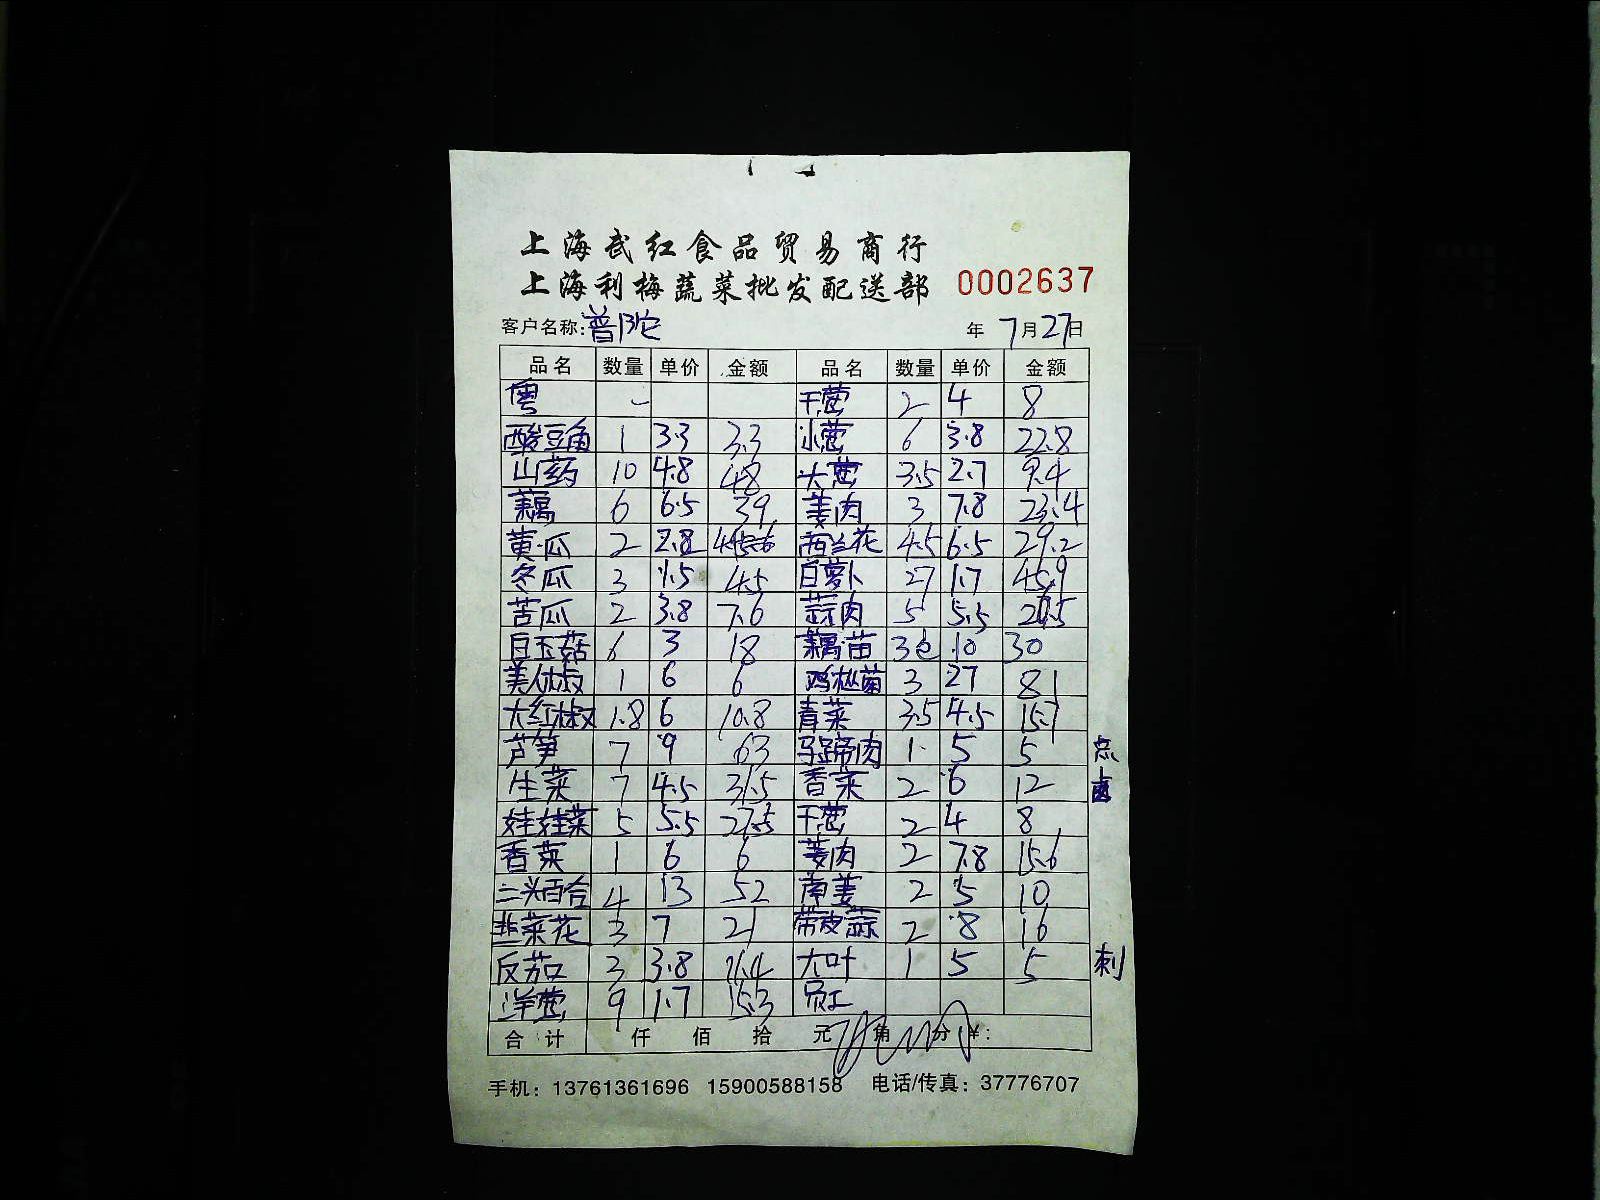 上海武红食品贸易商行
上海利梅蔬菜批发配送部 0002637
客户名称:普陀 年 7月27日
品名 数量 单价 金额 品名 数量 单价 金额
粤 干葱 2 4 8
酸豆角 1 3.3 3.3 小葱 6 3.8 22.8
山药 10 4.8 48 大葱 3.5 2.7 9.4
藕 6 6.5 39 姜肉 3 7.8 23.4
黄瓜 2 2.8 西兰花 4.5 6.5 29.2
冬瓜 3 1.5 4.5 白萝卜 27 1.7 45.9
苦瓜 2 3.8 7.6 蒜肉 5 5.5 27.5
白玉菇 6 3 18 藕苗 3包 10 30
美人椒 1 6 6 鸡枞菌 3 27 81
大红椒 1.8 6 10.8 青菜 3.5 4.5 15.7
芦笋 7 9 63 马蹄肉 1 5 5 点
生菜 7 4.5 31.5 香菜 2 6 12 卤
娃娃菜 5 5.5 27.5 干葱 2 4 8
香菜 1 6 6 姜肉 2 7.8 15.6
二头百合 4 13 52 南姜 2 5 10
韭菜花 3 7 21 带皮蒜 2 8 16
反茄 3 3.8 11.4 大叶 1 5 5 刺
洋葱 9 1.7 15.3 员工
合计 仟 佰 拾 元 角 分 ¥:
手机：13761361696 15900588158 电话/传真：37776707